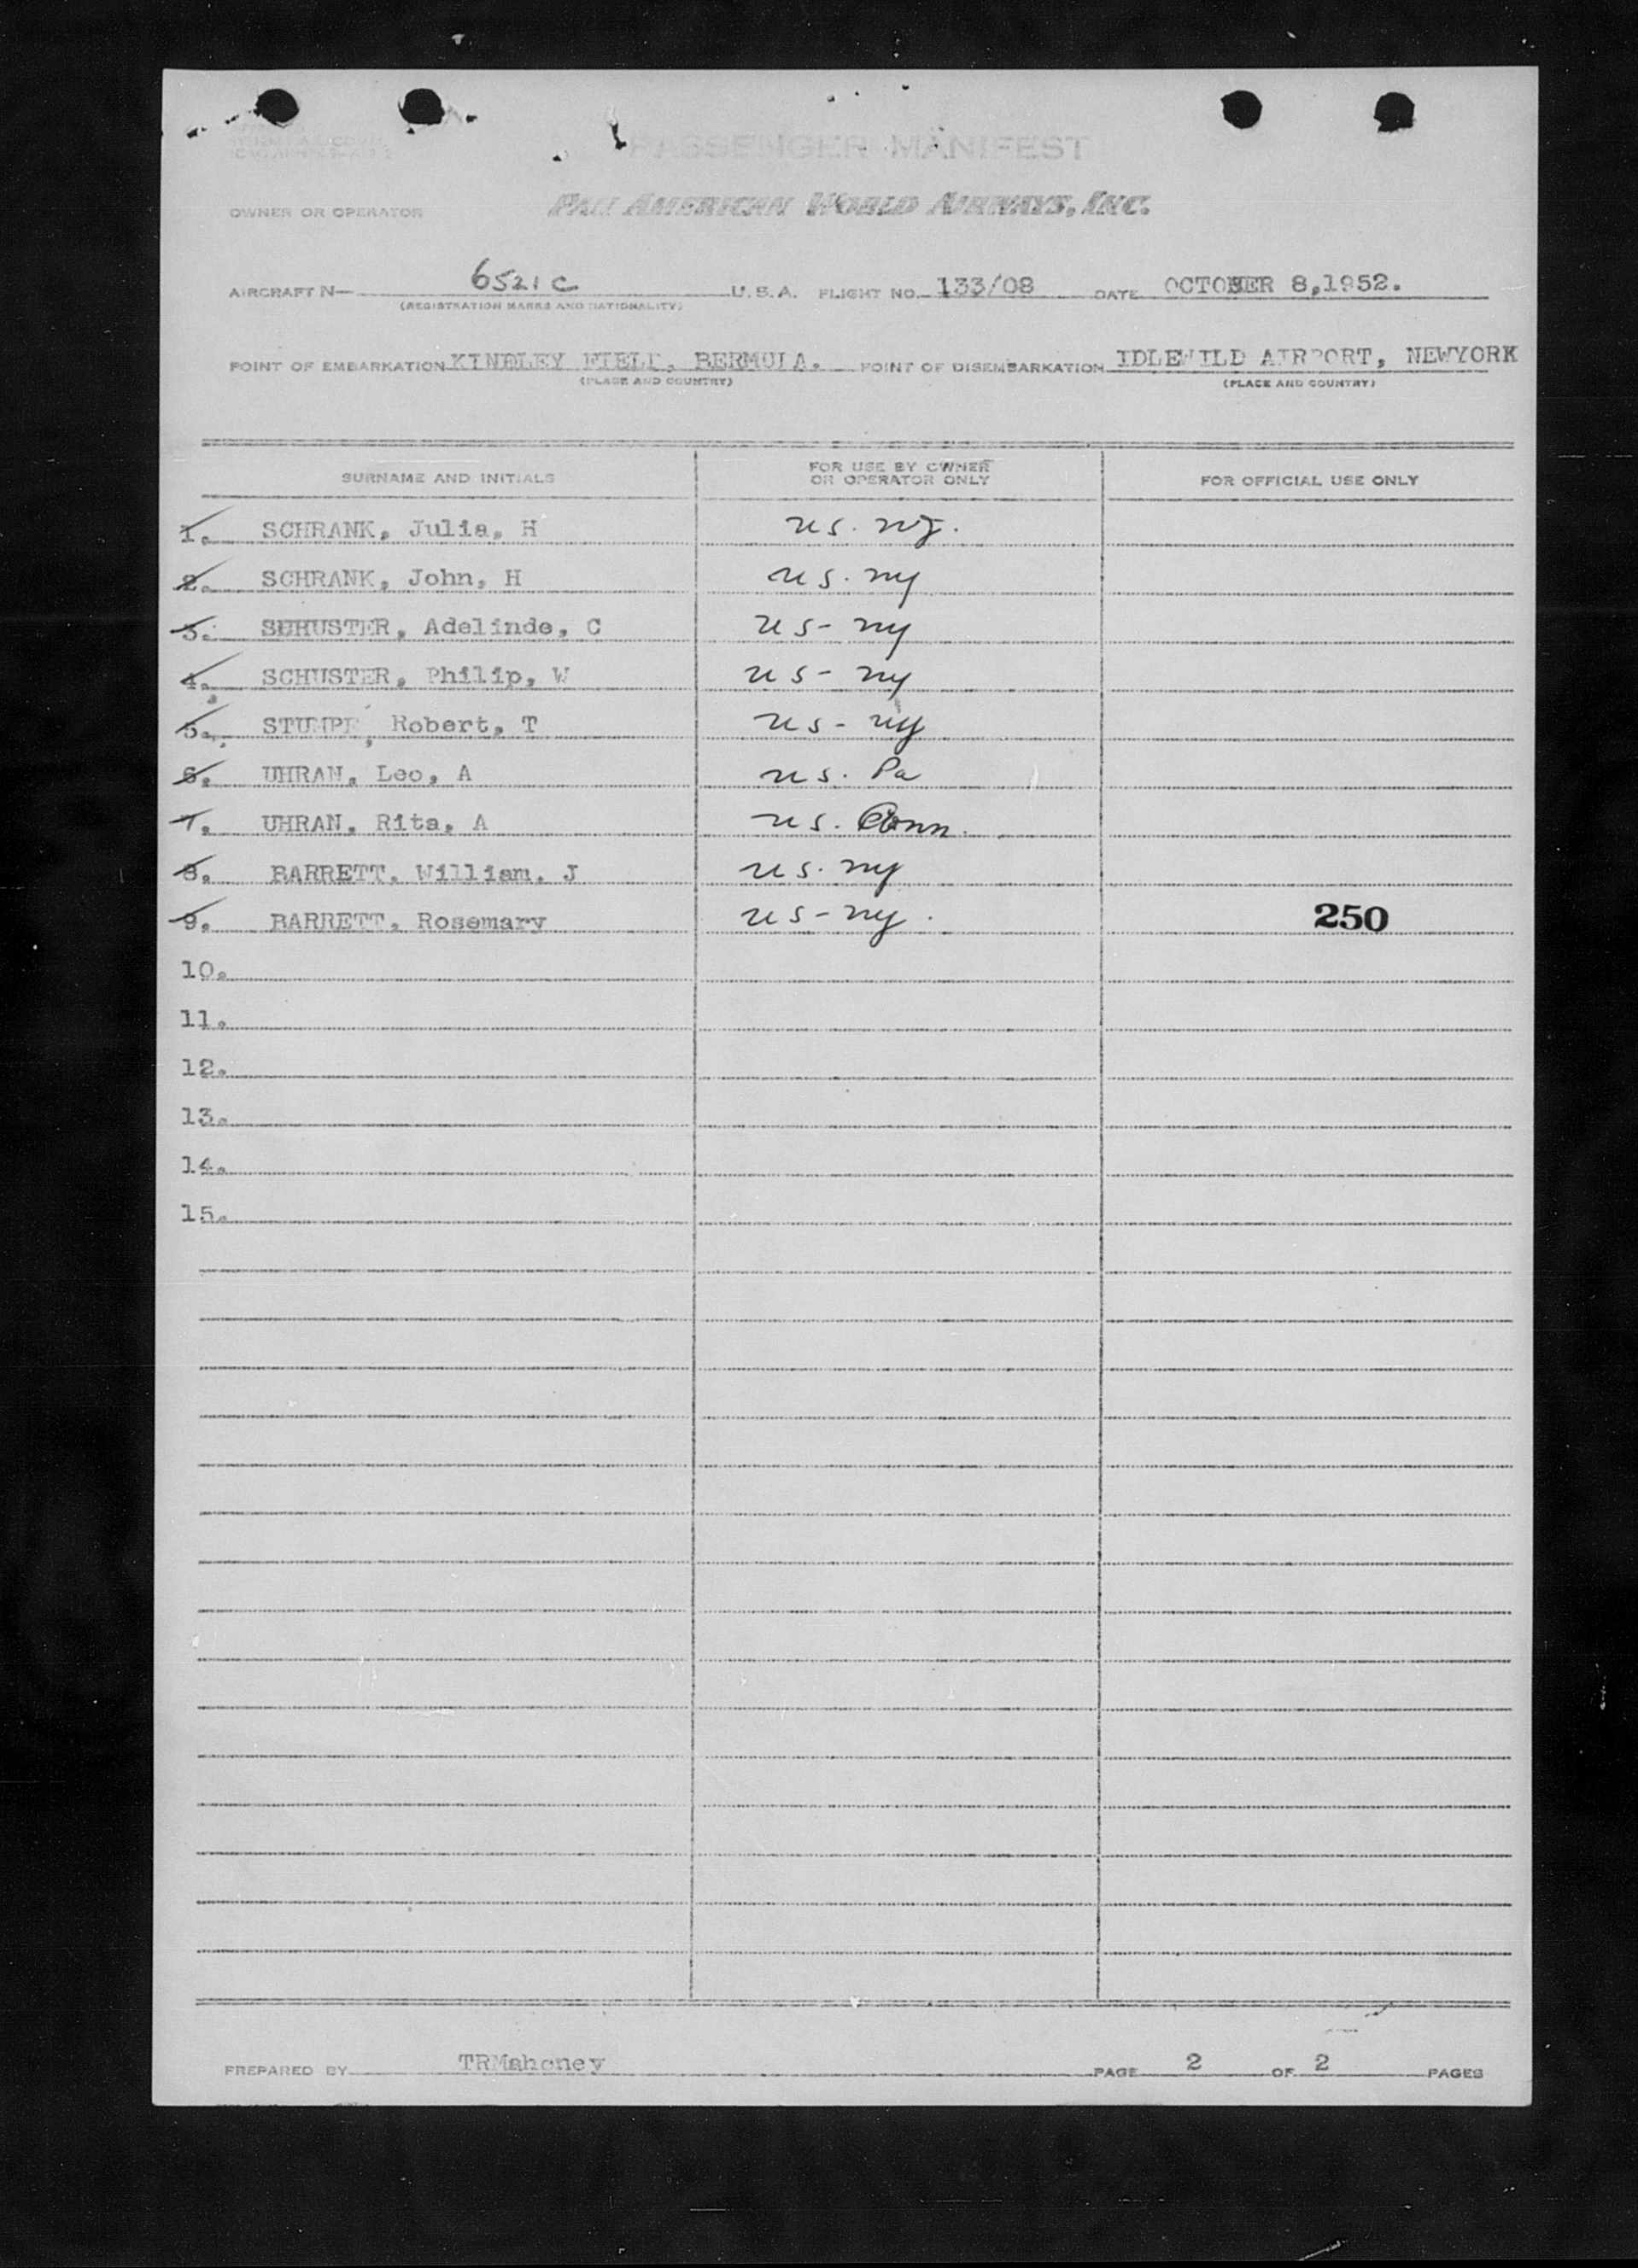 PASSENGER MANIFEST
OWNER OR OPERATOR PAN AMERICAN WORLD AIRWAYS, INC.
AIRCRAFT N- 6521C U.S.A. FLIGHT NO. 133/08 DATE OCTOBER 8,1952.
(REGISTRATION MARKS AND NATIONALITY)
POINT OF EMBARKATION KINDLEY FIELD, BERMUDA. POINT OF DISEMBARKATION IDLEWILD AIRPORT, NEWYORK
(PLACE AND COUNTRY) (PLACE AND COUNTRY)
SURNAME AND INITIALS FOR USE BY OWNER OR OPERATOR ONLY FOR OFFICIAL USE ONLY
1. SCHRANK, Julia, H us. nj.
2. SCHRANK, John, H us. ny
3. SCHUSTER, Adelinde, C us- ny
4. SCHUSTER, Philip, W us- ny
5. Robert, T us- ny
6. UHRAN, Leo, A us. Pa
7. UHRAN, Rita, A us. Conn.
8. BARRETT, William, J us. ny
9. BARRETT, Rosemary us-ny. 250
10.
11.
12.
13.
14.
15.
PREPARED BY TRMahoney PAGE 2 OF 2 PAGES